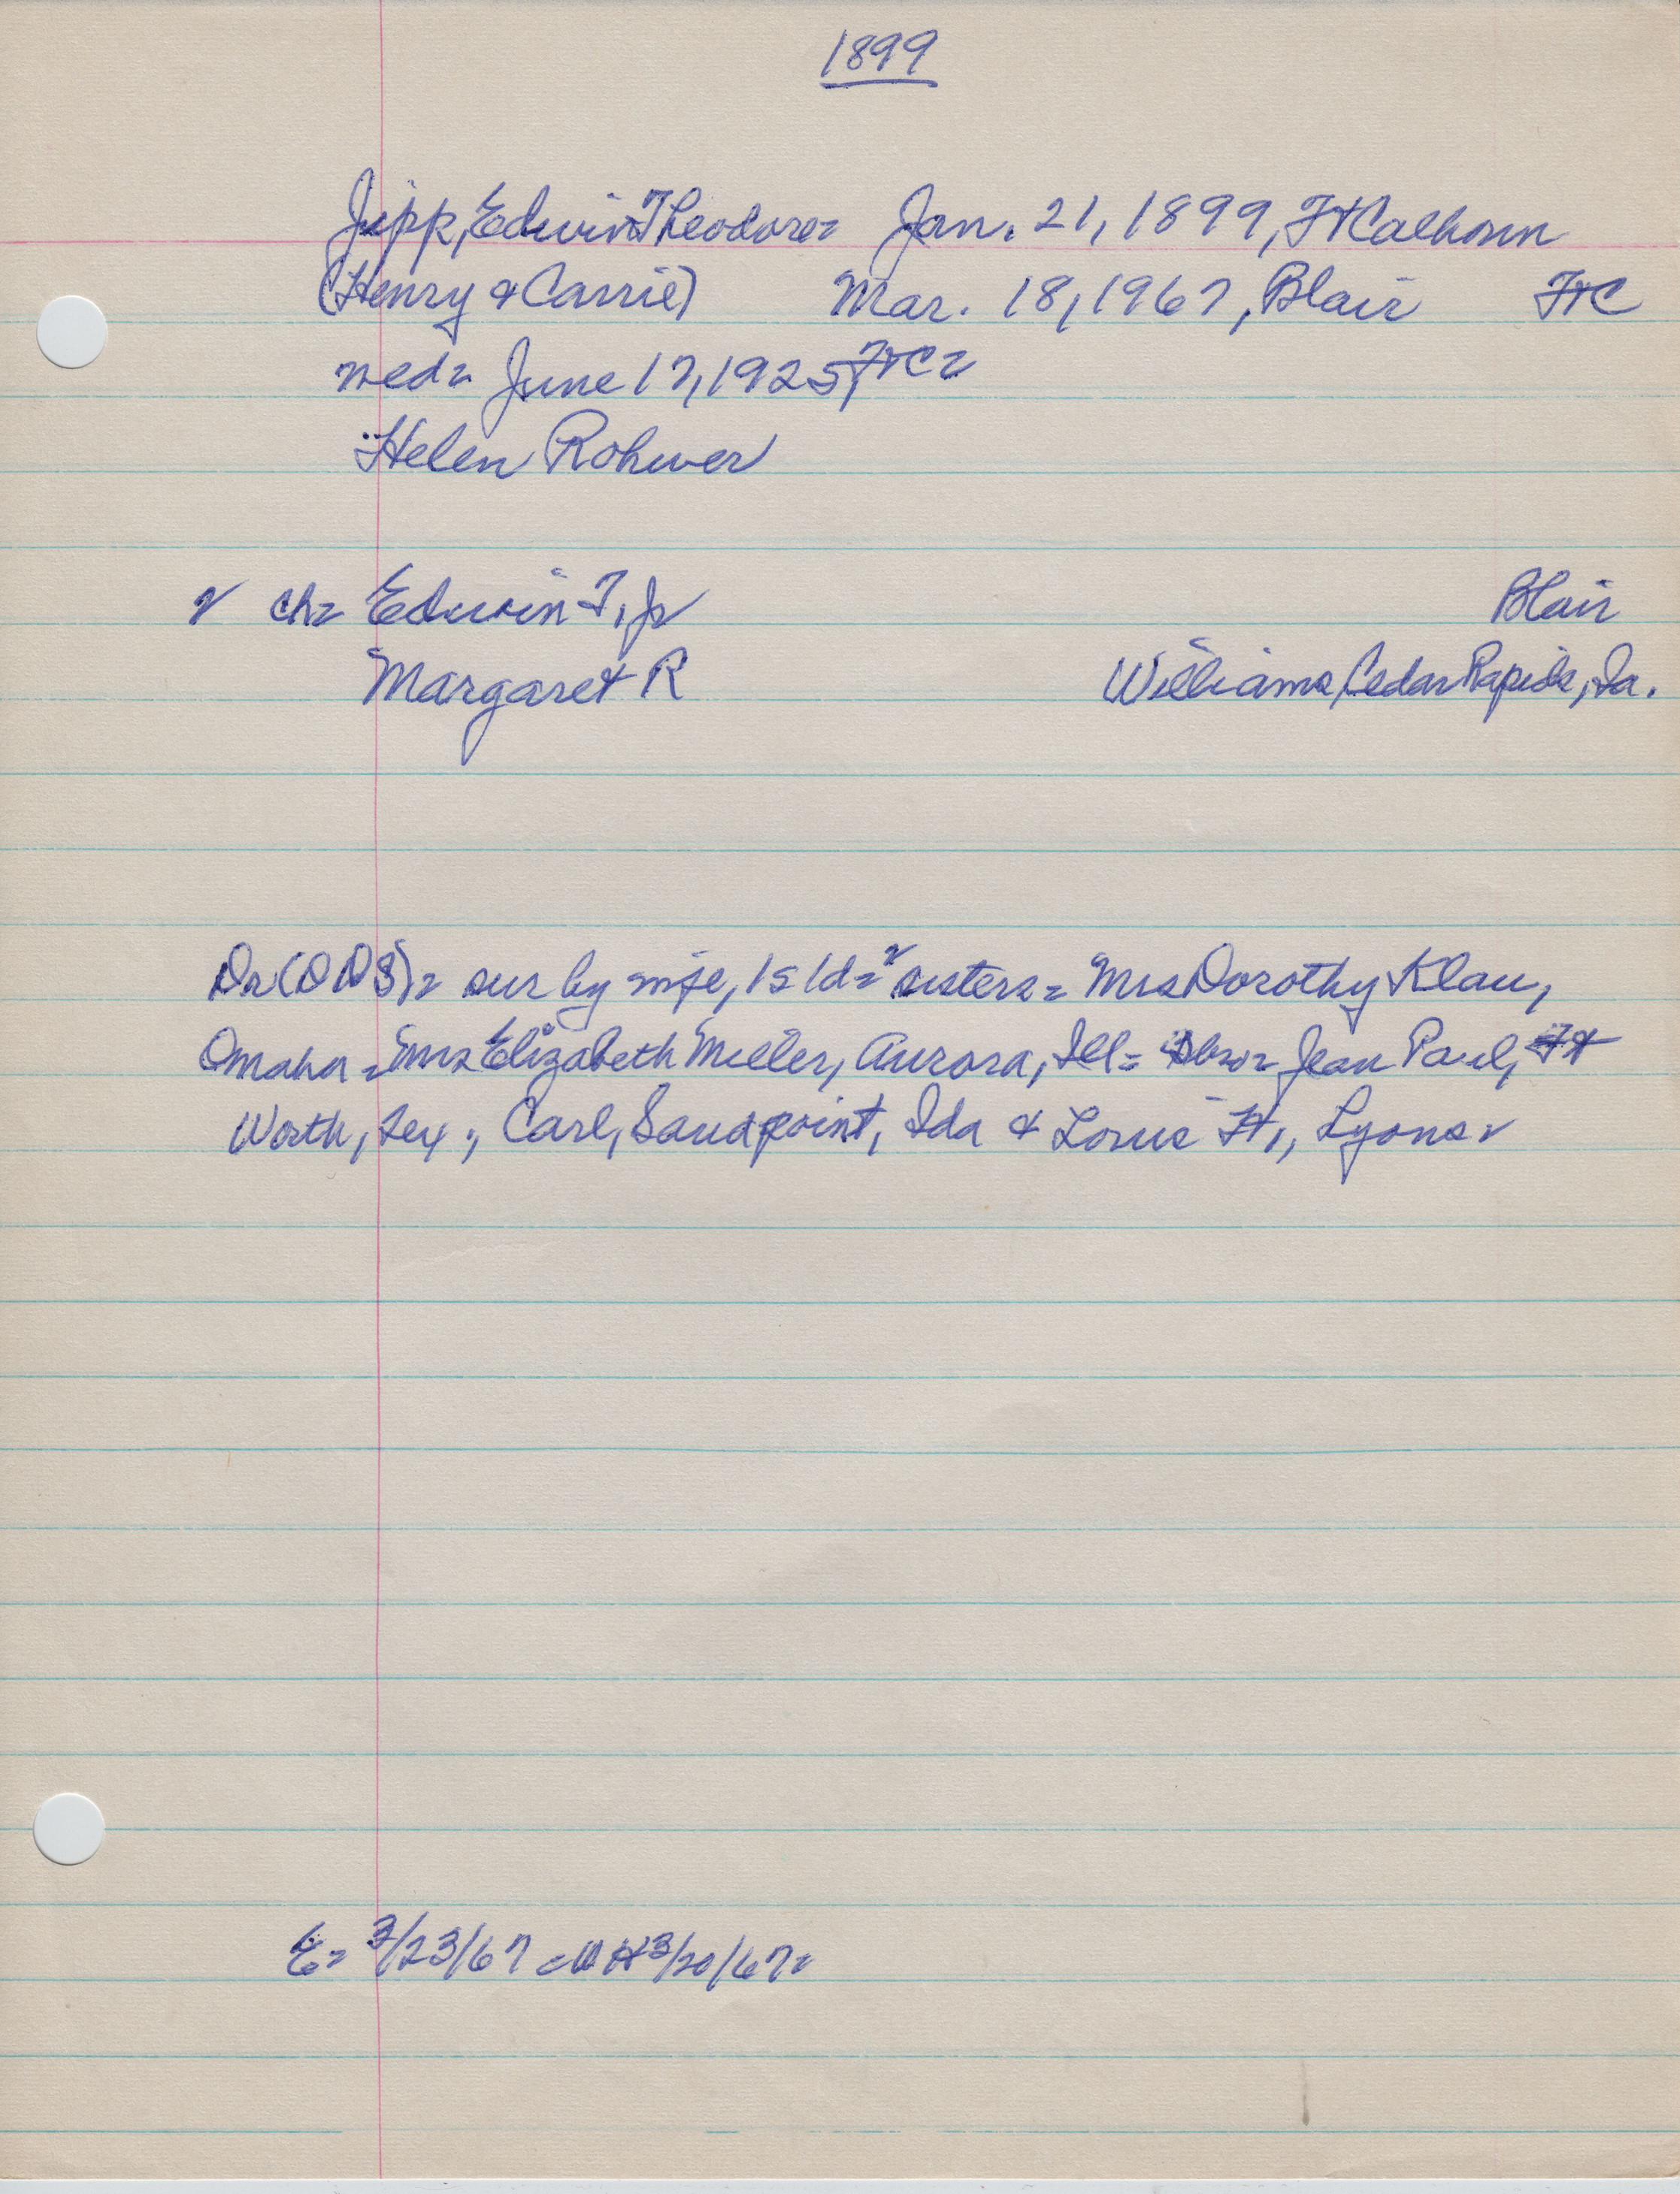 1899
Jipp, Edwin Theodore= Jan. 21, 1899, Ft Calhoun
(Henry & Carrie) Mar. 18, 1967, Blair FtC
wed= June 17, 1925, FtC=
Helen Rohwer
2 ch= Edwin T, Jr Blair
Margaret R Williams, Cedar Rapids, Ia.
Dr (DDS)= sur by wife, 1s 1d= 2 sisters= Mrs Dorothy Klau,
Omaha= Mrs Elizabeth Miller, Aurora, Ill= bro= Jean Paul, Ft
Worth, Tex., Carl, Sandpoint, Ida & Louis H., Lyons=
E= 3/23/67 = 3/20/67=